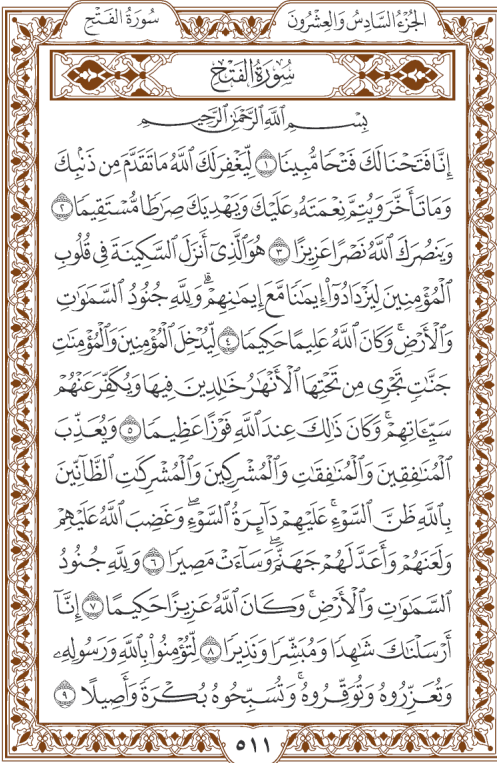 سُورَةُ الفَتۡحِ الجُزۡءُ السَّادِسُ وَالعِشۡرُونَ
سُورَةُ الفَتۡحِ
بِسۡمِ ٱللَّهِ ٱلرَّحۡمَٰنِ ٱلرَّحِيمِ
إِنَّا فَتَحۡنَا لَكَ فَتۡحٗا مُّبِينٗا ١ لِّيَغۡفِرَ لَكَ ٱللَّهُ مَا تَقَدَّمَ مِن ذَنۢبِكَ
وَمَا تَأَخَّرَ وَيُتِمَّ نِعۡمَتَهُۥ عَلَيۡكَ وَيَهۡدِيَكَ صِرَٰطٗا مُّسۡتَقِيمٗا ٢
وَيَنصُرَكَ ٱللَّهُ نَصۡرًا عَزِيزًا ٣ هُوَ ٱلَّذِيٓ أَنزَلَ ٱلسَّكِينَةَ فِي قُلُوبِ
ٱلۡمُؤۡمِنِينَ لِيَزۡدَادُوٓاْ إِيمَٰنٗا مَّعَ إِيمَٰنِهِمۡۗ وَلِلَّهِ جُنُودُ ٱلسَّمَٰوَٰتِ
وَٱلۡأَرۡضِۚ وَكَانَ ٱللَّهُ عَلِيمًا حَكِيمٗا ٤ لِّيُدۡخِلَ ٱلۡمُؤۡمِنِينَ وَٱلۡمُؤۡمِنَٰتِ
جَنَّٰتٖ تَجۡرِي مِن تَحۡتِهَا ٱلۡأَنۡهَٰرُ خَٰلِدِينَ فِيهَا وَيُكَفِّرَ عَنۡهُمۡ
سَيِّـَٔاتِهِمۡۚ وَكَانَ ذَٰلِكَ عِندَ ٱللَّهِ فَوۡزًا عَظِيمٗا ٥ وَيُعَذِّبَ
ٱلۡمُنَٰفِقِينَ وَٱلۡمُنَٰفِقَٰتِ وَٱلۡمُشۡرِكِينَ وَٱلۡمُشۡرِكَٰتِ ٱلظَّآنِّينَ
بِٱللَّهِ ظَنَّ ٱلسَّوۡءِۚ عَلَيۡهِمۡ دَآئِرَةُ ٱلسَّوۡءِۖ وَغَضِبَ ٱللَّهُ عَلَيۡهِمۡ
وَلَعَنَهُمۡ وَأَعَدَّ لَهُمۡ جَهَنَّمَۖ وَسَآءَتۡ مَصِيرٗا ٦ وَلِلَّهِ جُنُودُ
ٱلسَّمَٰوَٰتِ وَٱلۡأَرۡضِۚ وَكَانَ ٱللَّهُ عَزِيزًا حَكِيمًا ٧ إِنَّآ
أَرۡسَلۡنَٰكَ شَٰهِدٗا وَمُبَشِّرٗا وَنَذِيرٗا ٨ لِّتُؤۡمِنُواْ بِٱللَّهِ وَرَسُولِهِۦ
وَتُعَزِّرُوهُ وَتُوَقِّرُوهُۚ وَتُسَبِّحُوهُ بُكۡرَةٗ وَأَصِيلًا ٩
٥١١